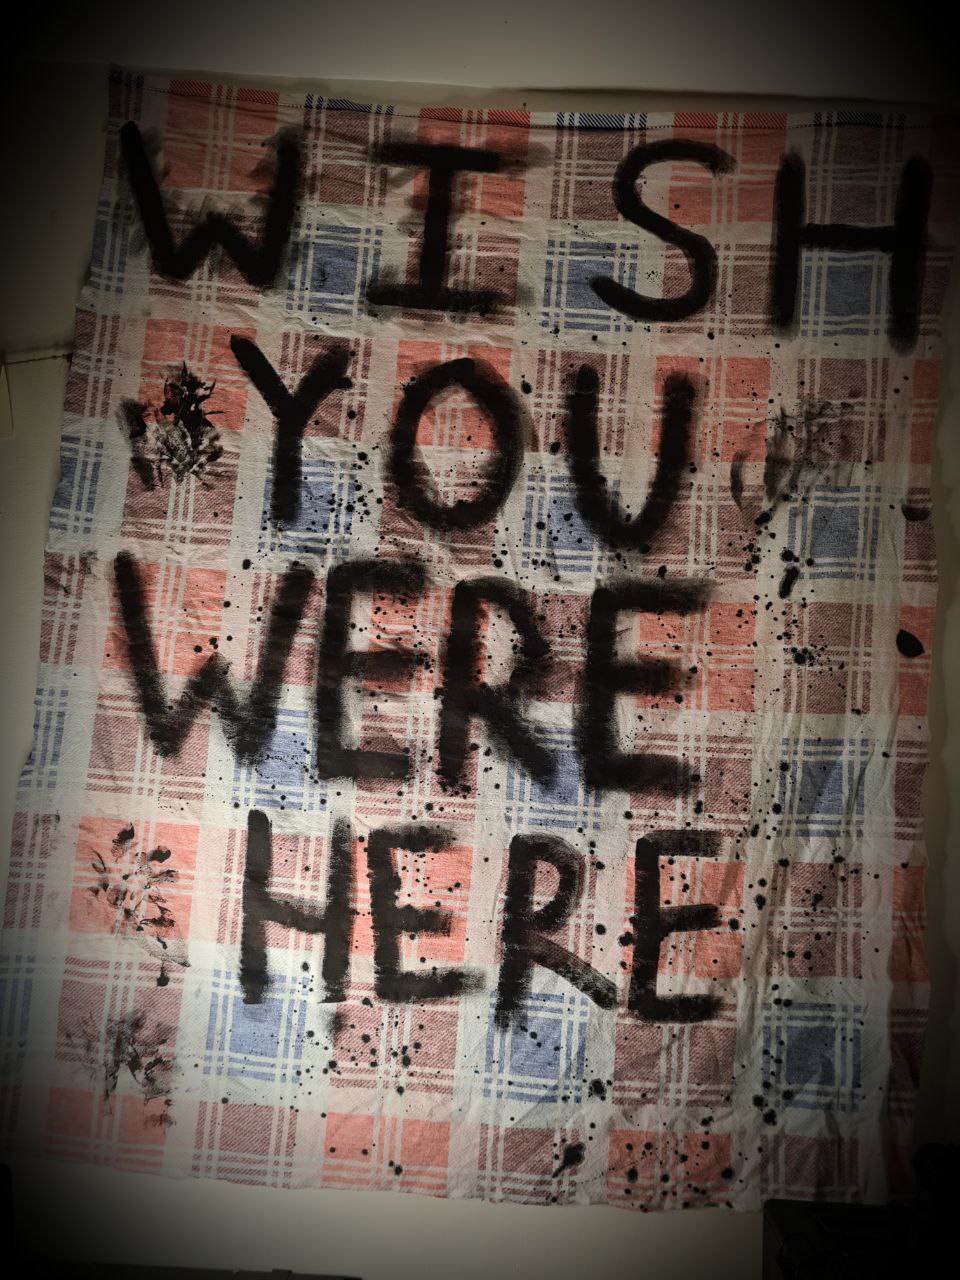 WISH
YOU
WERE
HERE